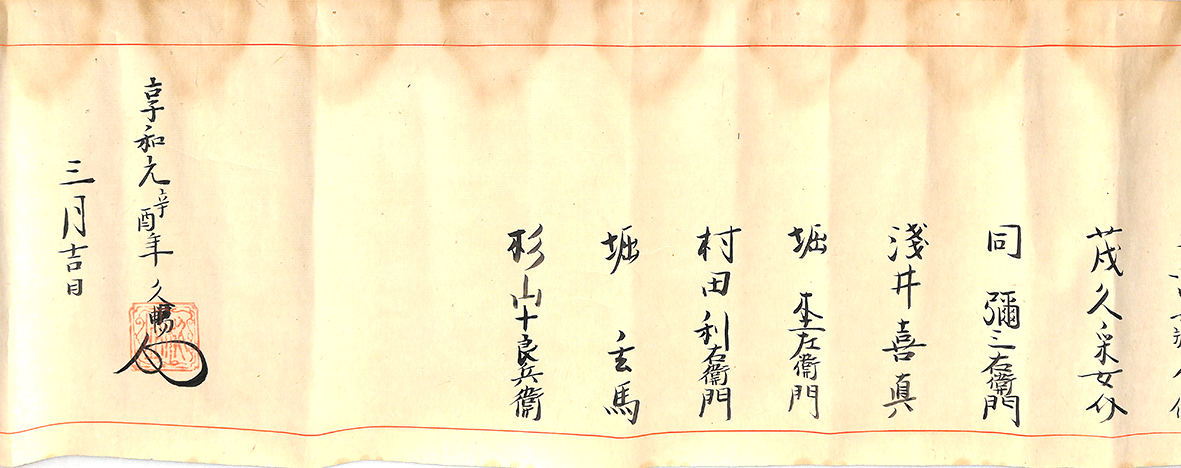 茂久采女介
同 彌三右衛門
淺井喜真
堀 左衛門
村田利右衛門
堀 玄馬
杉山十良兵衛
享和元辛酉年 久暢
三月吉日